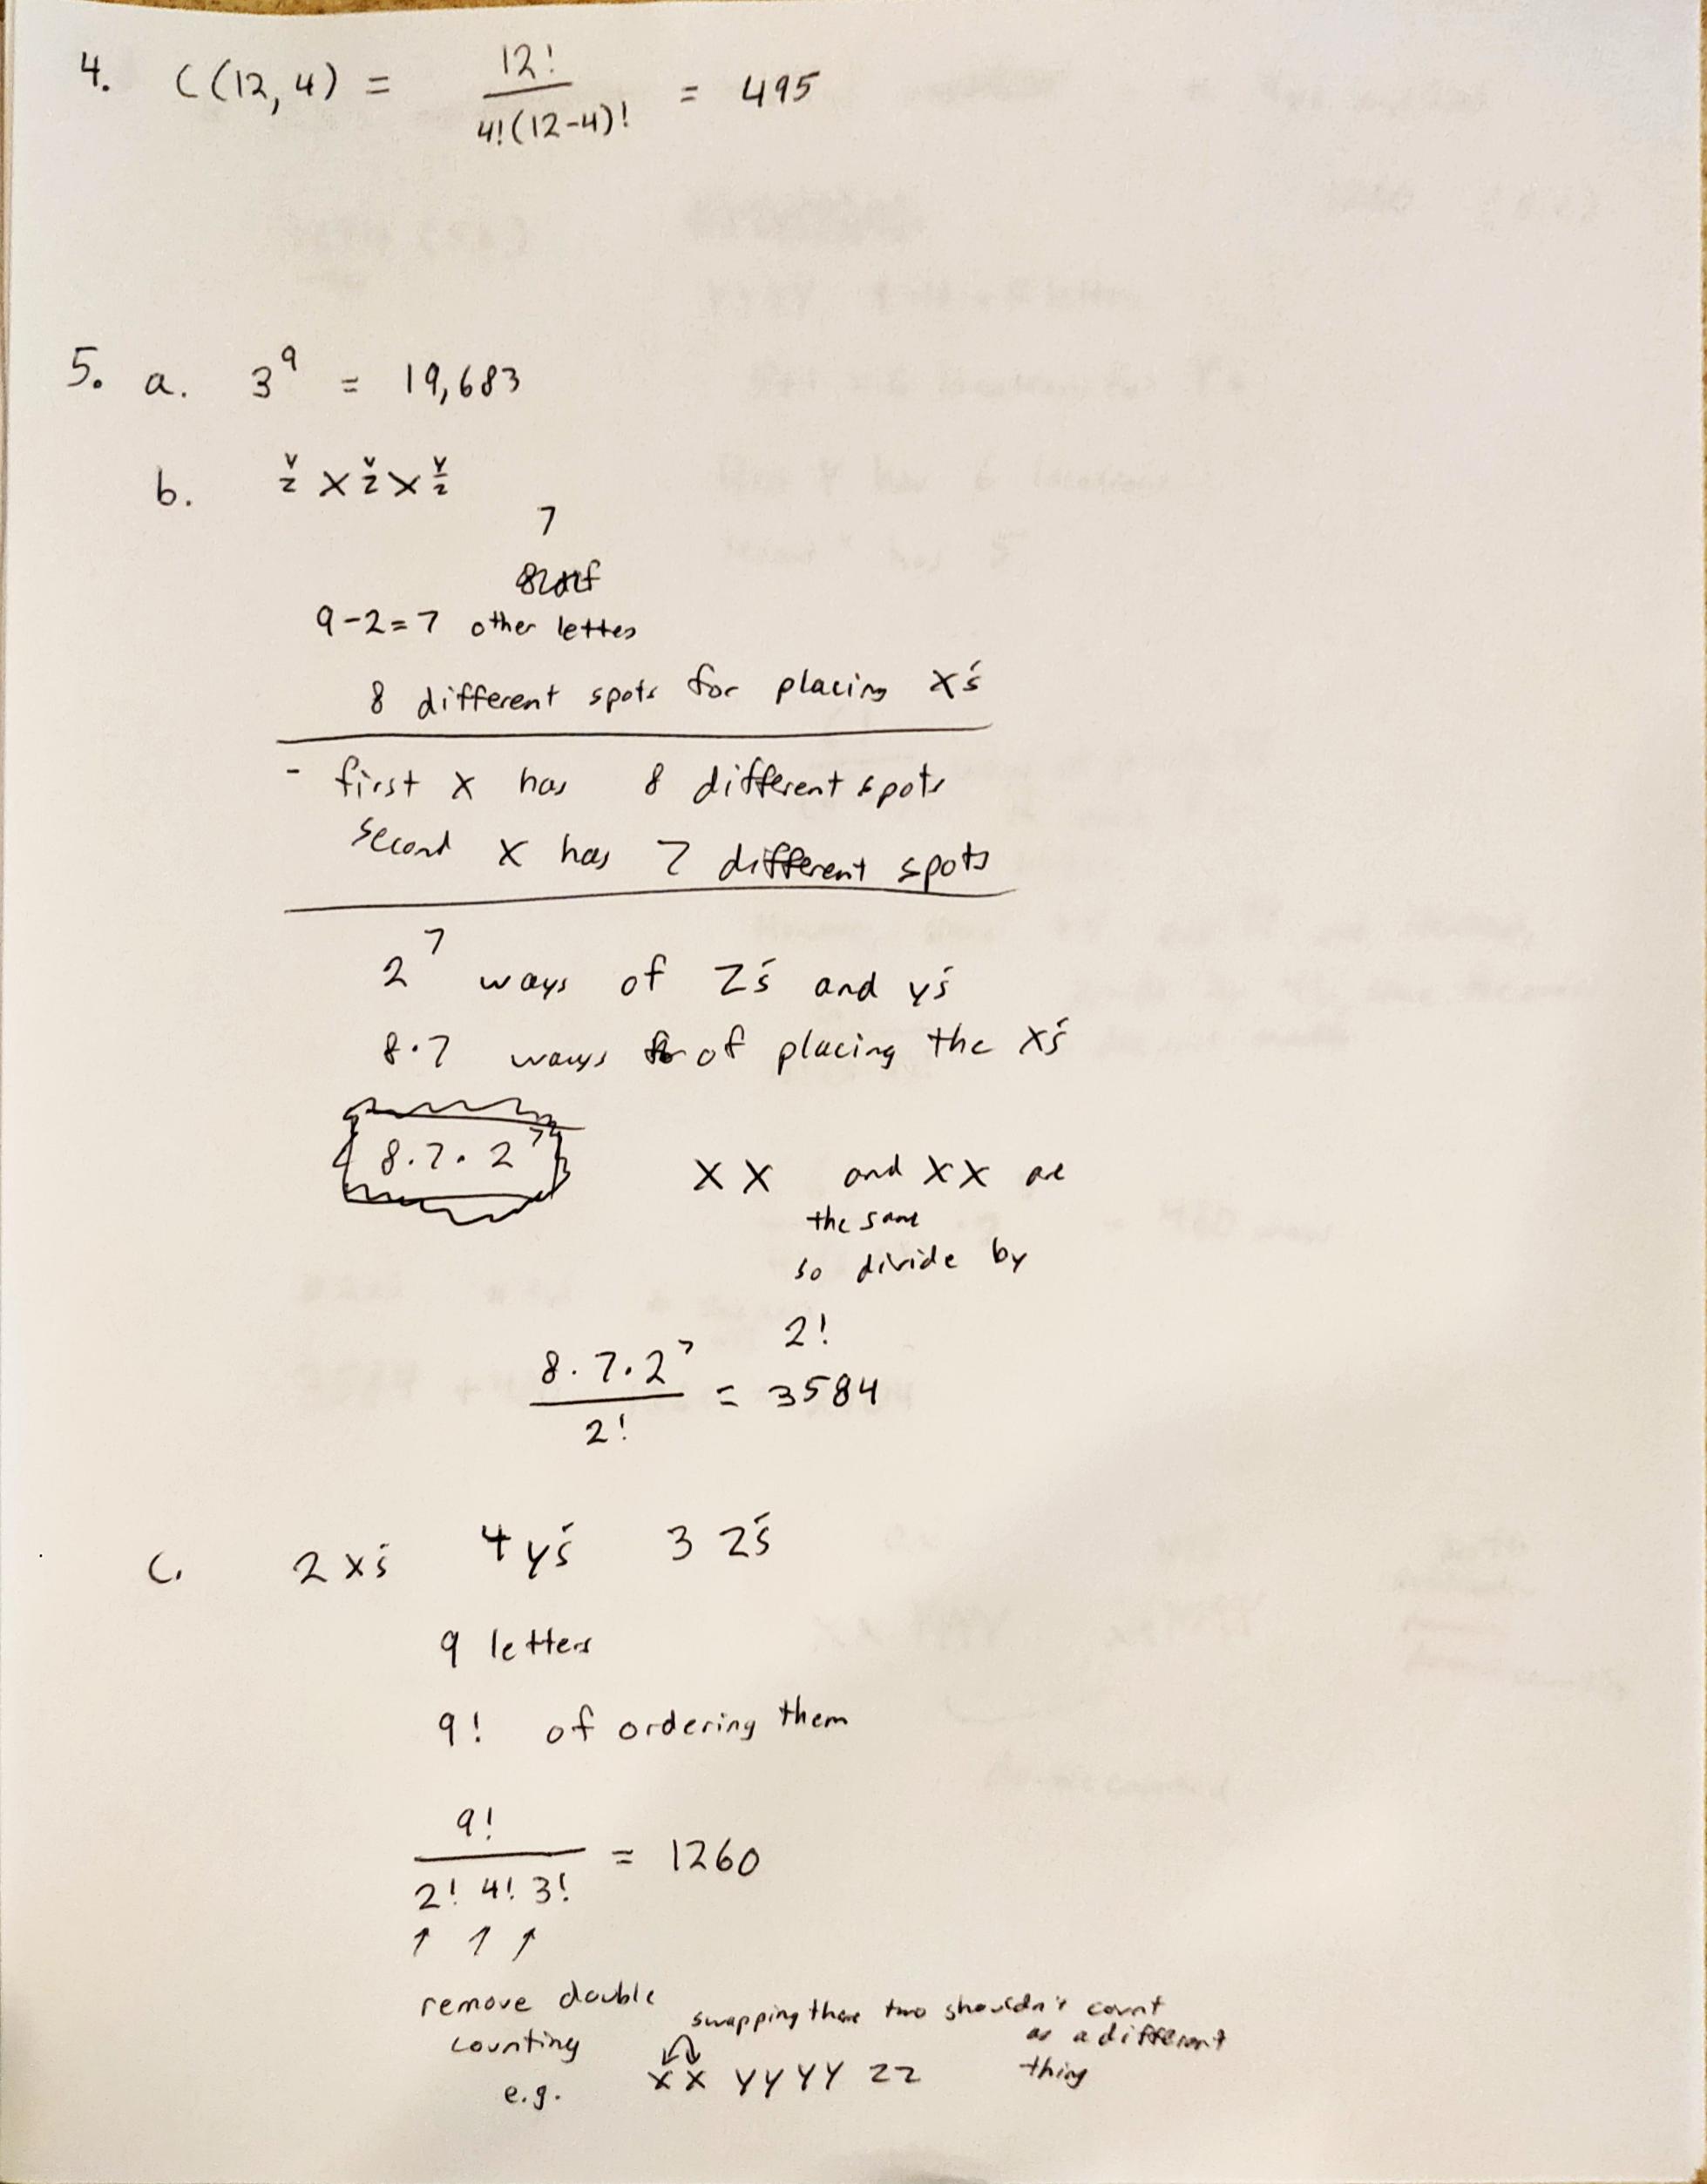 4. C(12,4) = 12! / 4!(12-4)! = 495
5. a. 3^9 = 19,683
b. y/z X y/z X y/z
7
9-2=7 other lettes
8 different spots for placing X's
- first X has 8 different spots
second X has 7 different spots
2^7 ways of Z's and y's
8·7 ways of placing the X's
8·7·2^7
X X and XX are
the same
so divide by
2!
8·7·2^7 / 2! = 3584
c. 2 x's 4 y's 3 z's
9 letters
9! of ordering them
9! / 2! 4! 3! = 1260
↑ ↑ ↑
remove double
counting
e.g.
swapping these two shouldn't count
as a different
thing
X X Y Y Y Y Z Z